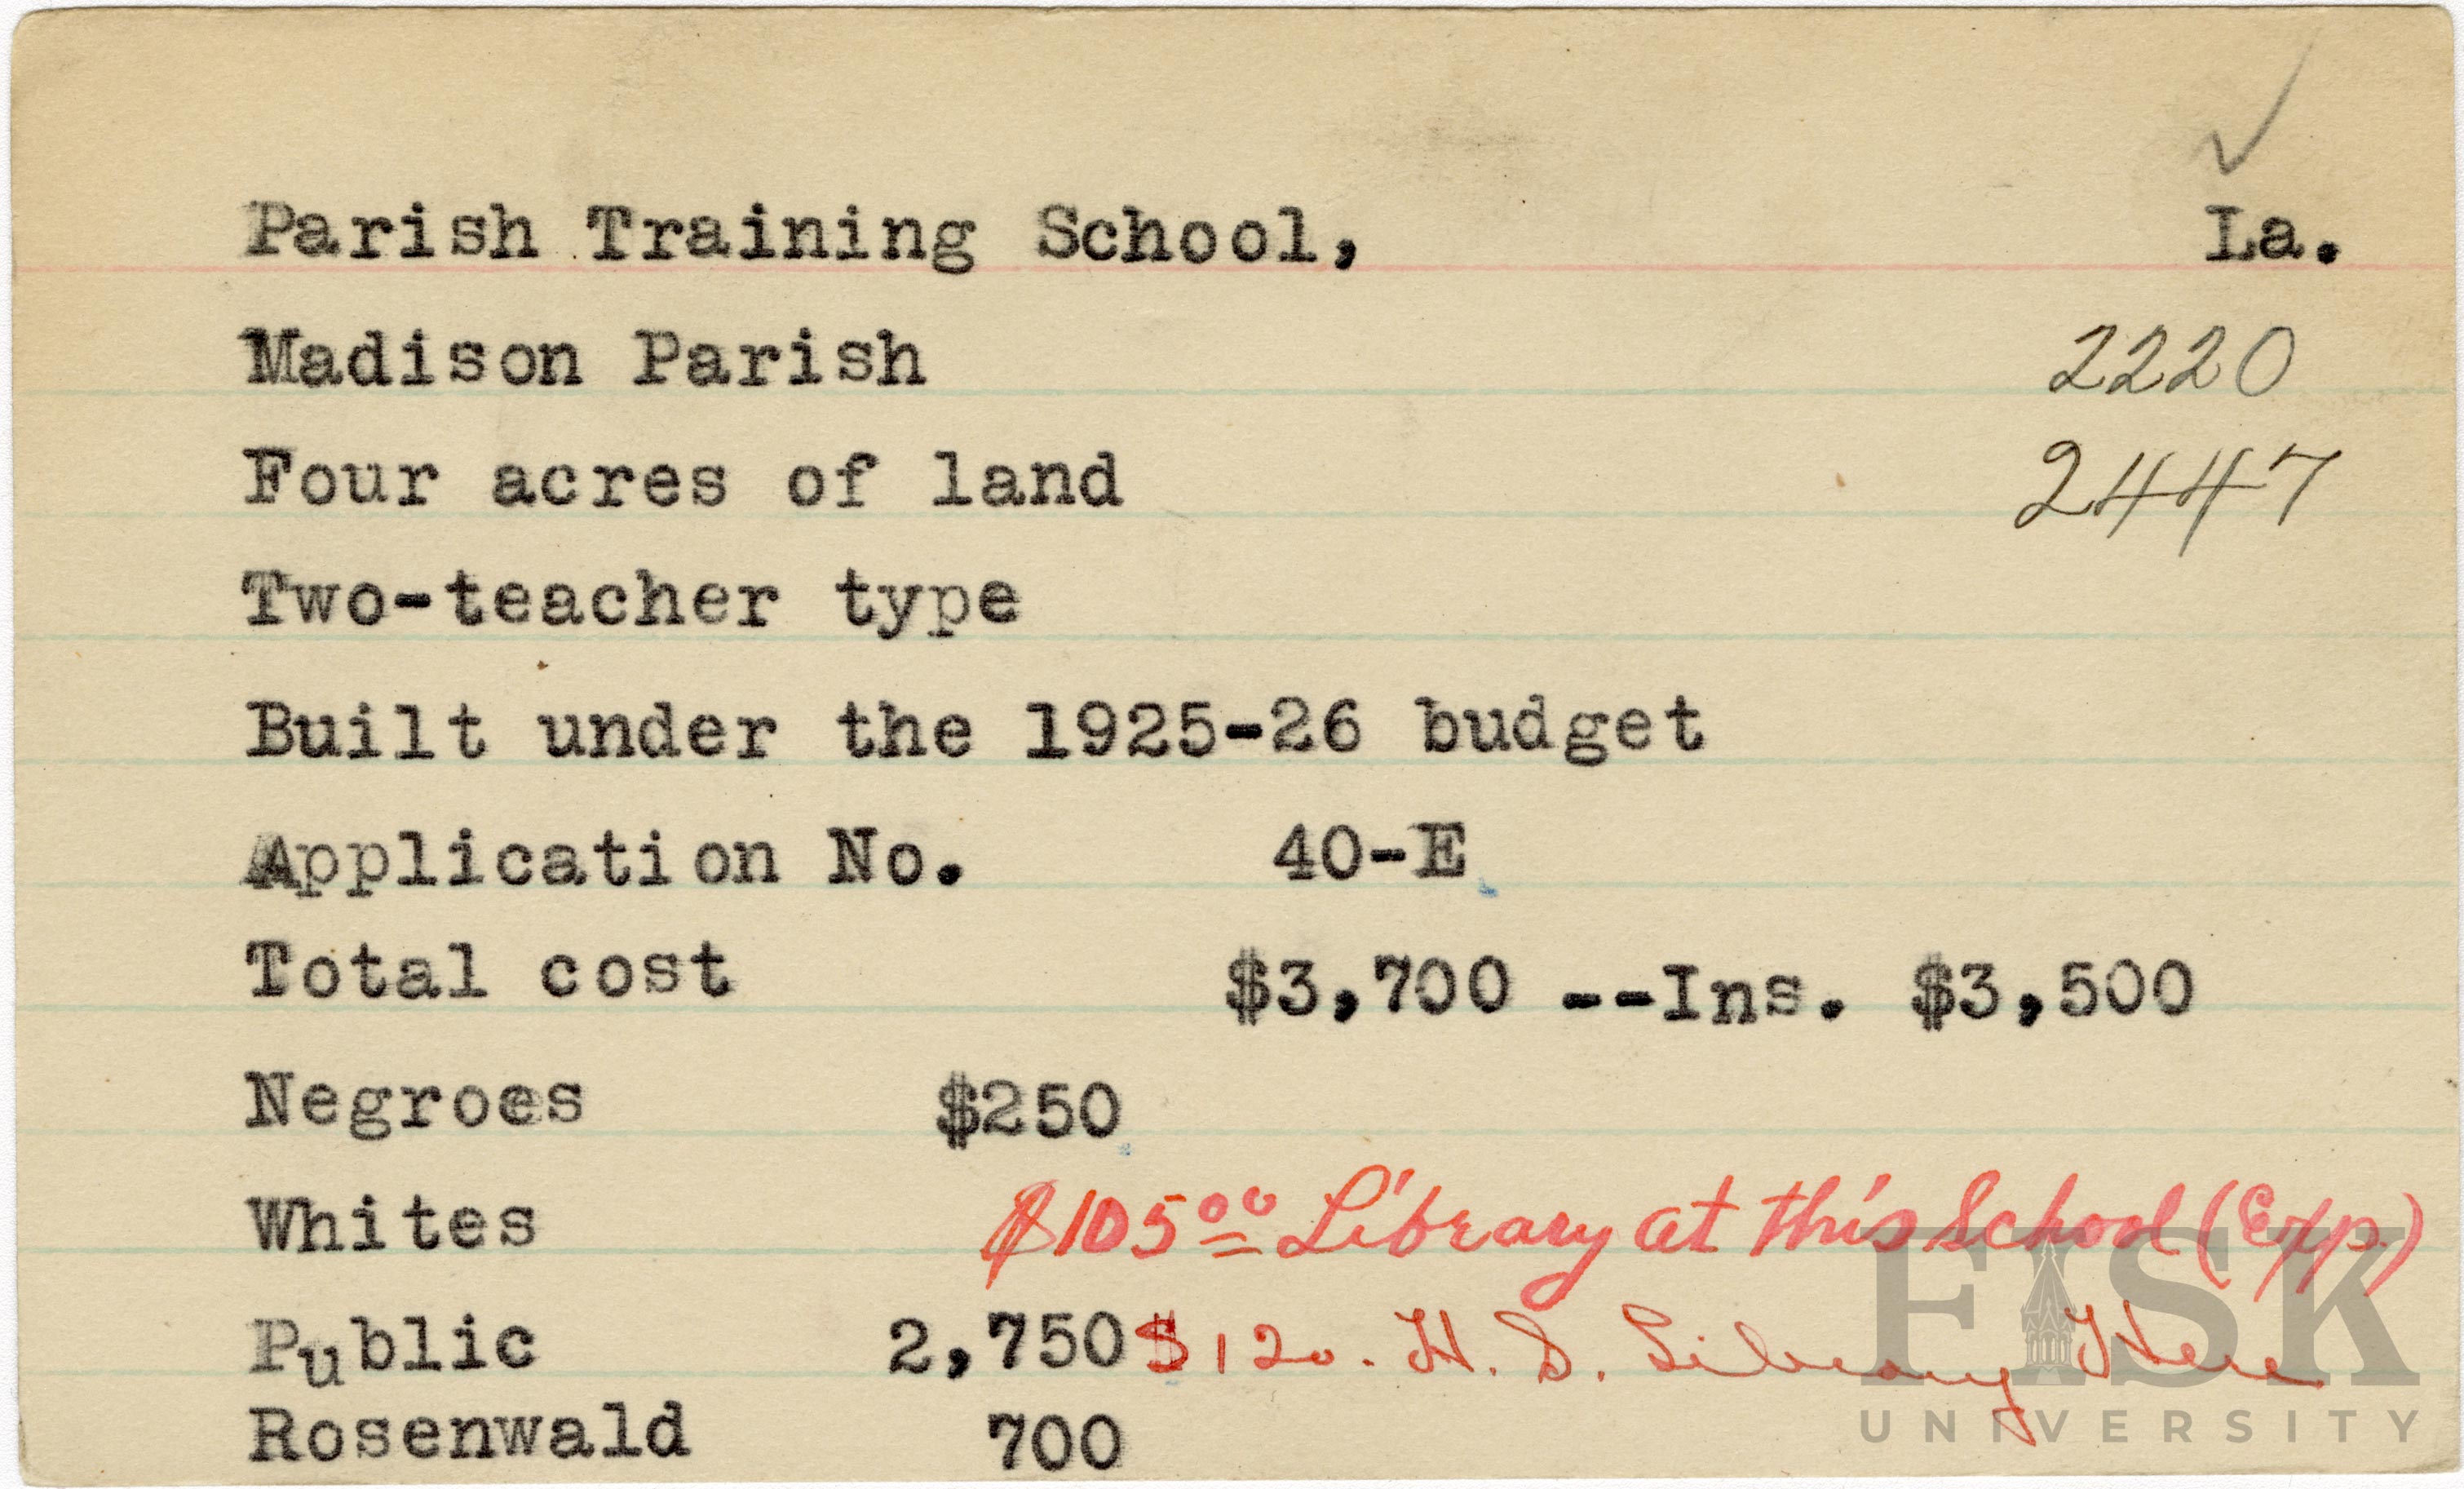 Parish Training School, La.
Madison Parish 2220
Four acres of land 2447
Two-teacher type
Built under the 1925-26 budget
Application No. 40-E
Total cost $3,700 --Ins. $3,500
Negroes $250
Whites $105.00 Library at this School (Exp.)
Public 2,750 $120. H. S. Library Here
Rosenwald 700
FISK
UNIVERSITY